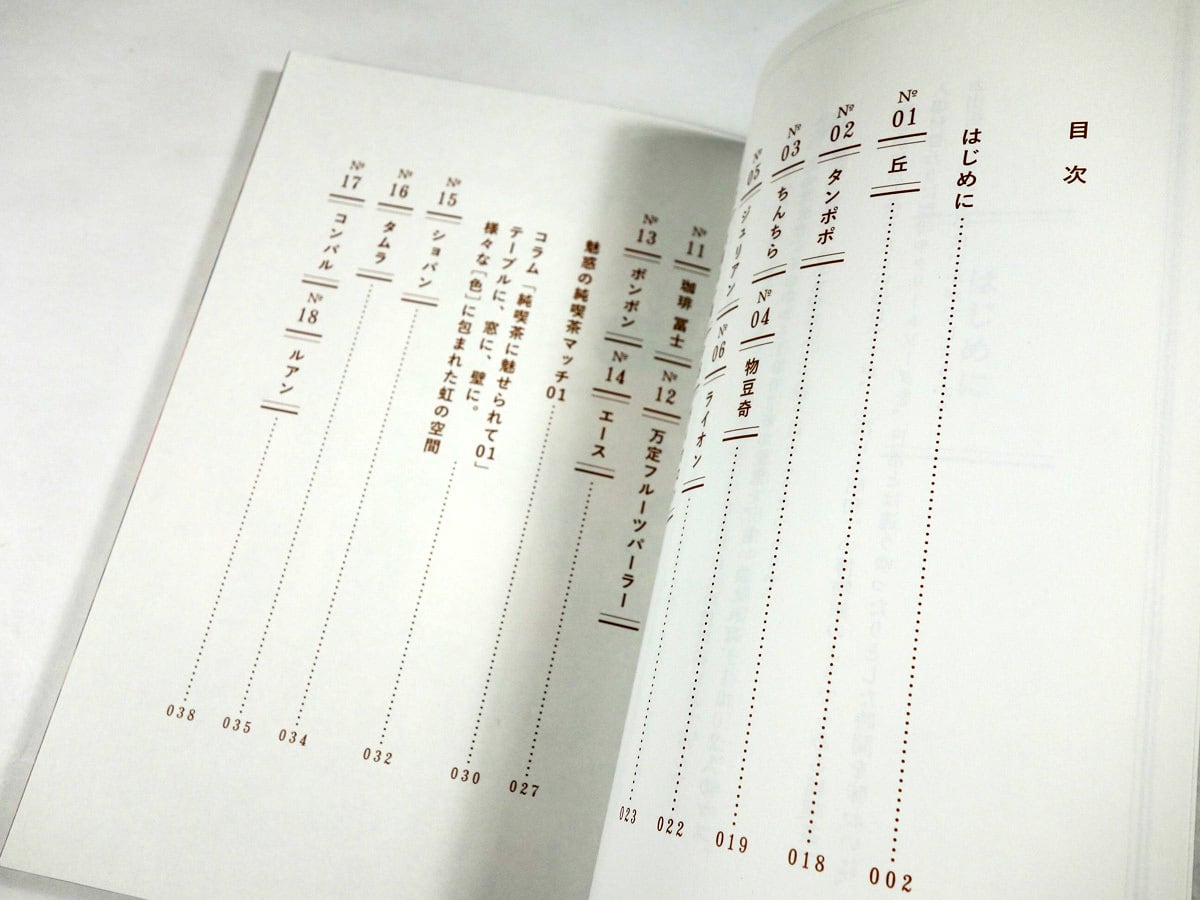 目次
はじめに 002
№01 丘 018
№02 タンポポ 019
№03 ちんちら №04 物豆奇 022
№05 ジュリアン №06 ライオン 023
№11 珈琲 冨士 №12 万定フルーツパーラー
№13 ボンボン №14 エース 027
魅惑の純喫茶マッチ01 030
コラム「純喫茶に魅せられて01」
テーブルに、窓に、壁に。
様々な［色］に包まれた虹の空間 032
№15 ショパン 034
№16 タムラ 035
№17 コンパル №18 ルアン 038